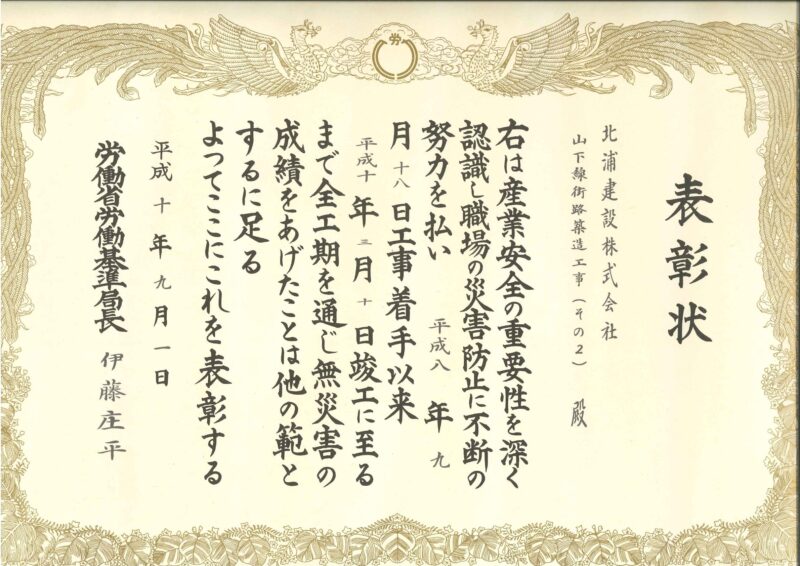 労
表彰状
北浦建設株式会社
山下線街路築造工事（その２） 殿
右は産業安全の重要性を深く
認識し職場の災害防止に不断の
努力を払い 平成八 年 九
月 十八 日工事着手以来
平成十 年 三 月 十 日竣工に至る
まで全工期を通じ無災害の
成績をあげたことは他の範と
するに足る
よってここにこれを表彰する
平成 十 年 九 月 一 日
労働省労働基準局長 伊藤庄平